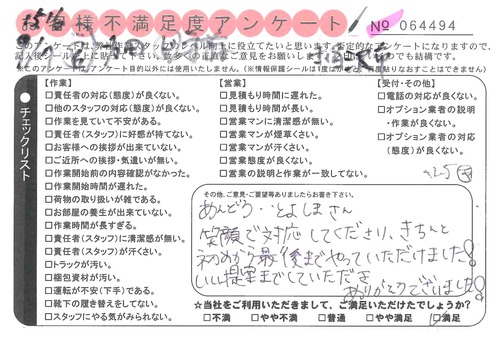 お客様不満足度アンケート
No 064494
このアンケートは、弊社作業スタッフのレベル向上に役立てたいと思います。否定的なアンケートになりますので、
記入後シールを上に貼って下さい。数多くの正直なご意見をお願いします。
※このアンケートはアンケート目的以外には使用いたしません。(※情報保護シールは1度はがすと再度貼りなおすことはできません)
●チェックリスト
【作業】
□責任者の対応(態度)が良くない。
□他のスタッフの対応(態度)が良くない。
□作業を見ていて不安がある。
□責任者(スタッフ)に好感が持てない。
□お客様への挨拶が出来ていない。
□ご近所への挨拶・気遣いが無い。
□作業開始前の内容確認がなかった。
□作業開始時間が遅れた。
□荷物の取り扱いが雑である。
□お部屋の養生が出来ていない。
□作業時間が長すぎる。
□責任者(スタッフ)に清潔感が無い。
□責任者(スタッフ)が汗くさい。
□トラックが汚い。
□梱包資材が汚い。
□運転が不安(下手)である。
□靴下の履き替えをしてない。
□スタッフにやる気がみられない。
【営業】
□見積もり時間に遅れた。
□見積もり時間が長い。
□営業マンに清潔感が無い。
□営業マンが煙草くさい。
□営業マンが汗くさい。
□営業態度が良くない。
□営業の説明と作業が一致してない。
【受付・その他】
□電話の対応が良くない。
□オプション業者の説明
・作業が良くない。
□オプション業者の対応
(態度)が良くない。
その他、ご意見・ご要望等ありましたらお書き下さい。
あんどう・とよしまさん
笑顔で対応してくださり、きちんと
初めから最後までやっていただけました!
いい提案までしていただき
ありがとうございました!
☆当社をご利用いただきまして、ご満足いただけたでしょうか?
□不満 □やや不満 □普通 □やや満足 □満足